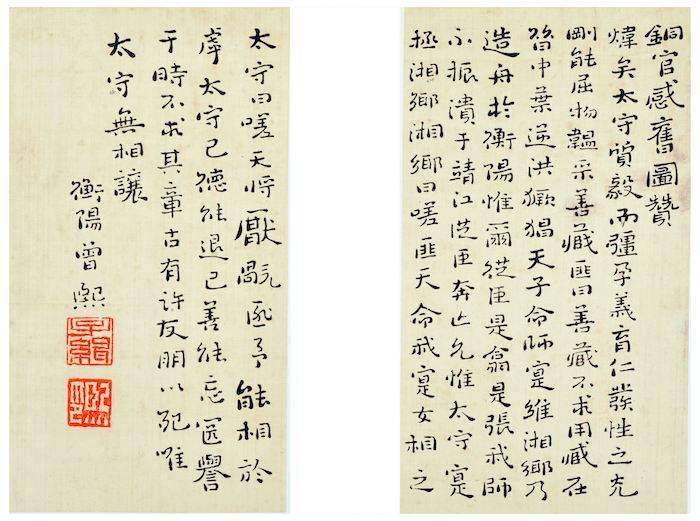 銅官感舊圖贊
煒矣太守質毅而彊孕義育仁發性之充
剛能屈物韞采善藏匪曰善藏不求用臧在
昔中葉逆洪獗猖天子命師寔維湘鄉乃
造舟於衡陽惟爾從臣是翕是張我師
不振潰于靖江從臣奔止允惟太守寔
拯湘鄉湘鄉曰嗟匪天命我寔女相之
太守曰嗟天將厭亂匪予能相於
虖太守已德能退已善能忘匿譽
于時不求其章古有許友朋以死唯
太守無相讓
衡陽曾熙